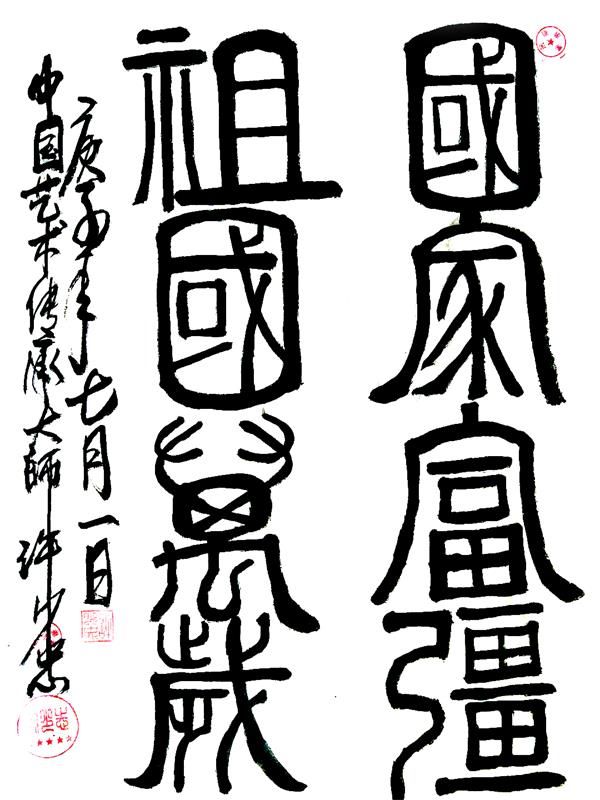 國家富彊
祖國萬歲
庚子年七月一日
中国艺术传承大師许